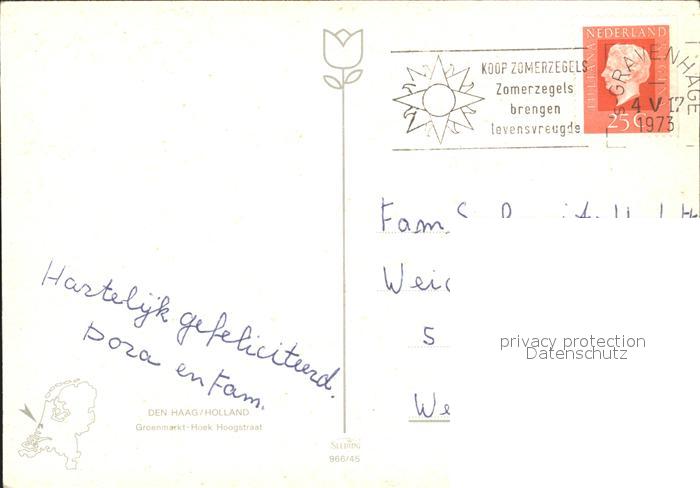 KOOP ZOMERZEGELS
Zomerzegels
brengen
levensvreugde
NEDERLAND
JULIANA REGINA
25 c
's-GRAVENHAGE
4 V 17
1973
Fam
Hartelijk gefeliciteerd.
Dora en Fam.
5
privacy protection
Datenschutz
We
DEN HAAG/HOLLAND
Groenmarkt-Hoek Hoogstraat
966/45